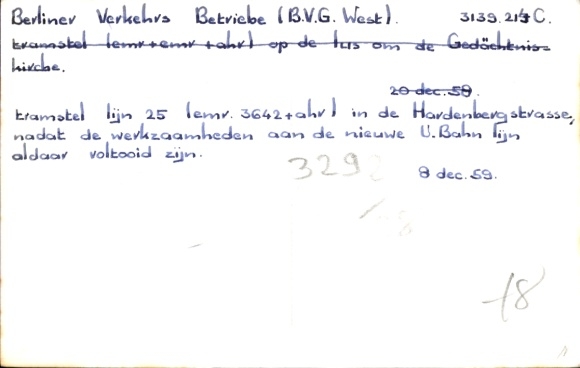 Berliner Verkehrs Betriebe (B.V.G. West). 3139.214 C.
tramstel (emr+emr+ahr) op de lus om de Gedächtnis-
kirche.
20 dec. 59.
tramstel lijn 25 (emr. 3642+ahr) in de Hardenbergstrasse,
nadat de werkzaamheden aan de nieuwe U.Bahn lijn
aldaar voltooid zijn.
3293
8 dec. 59.
18